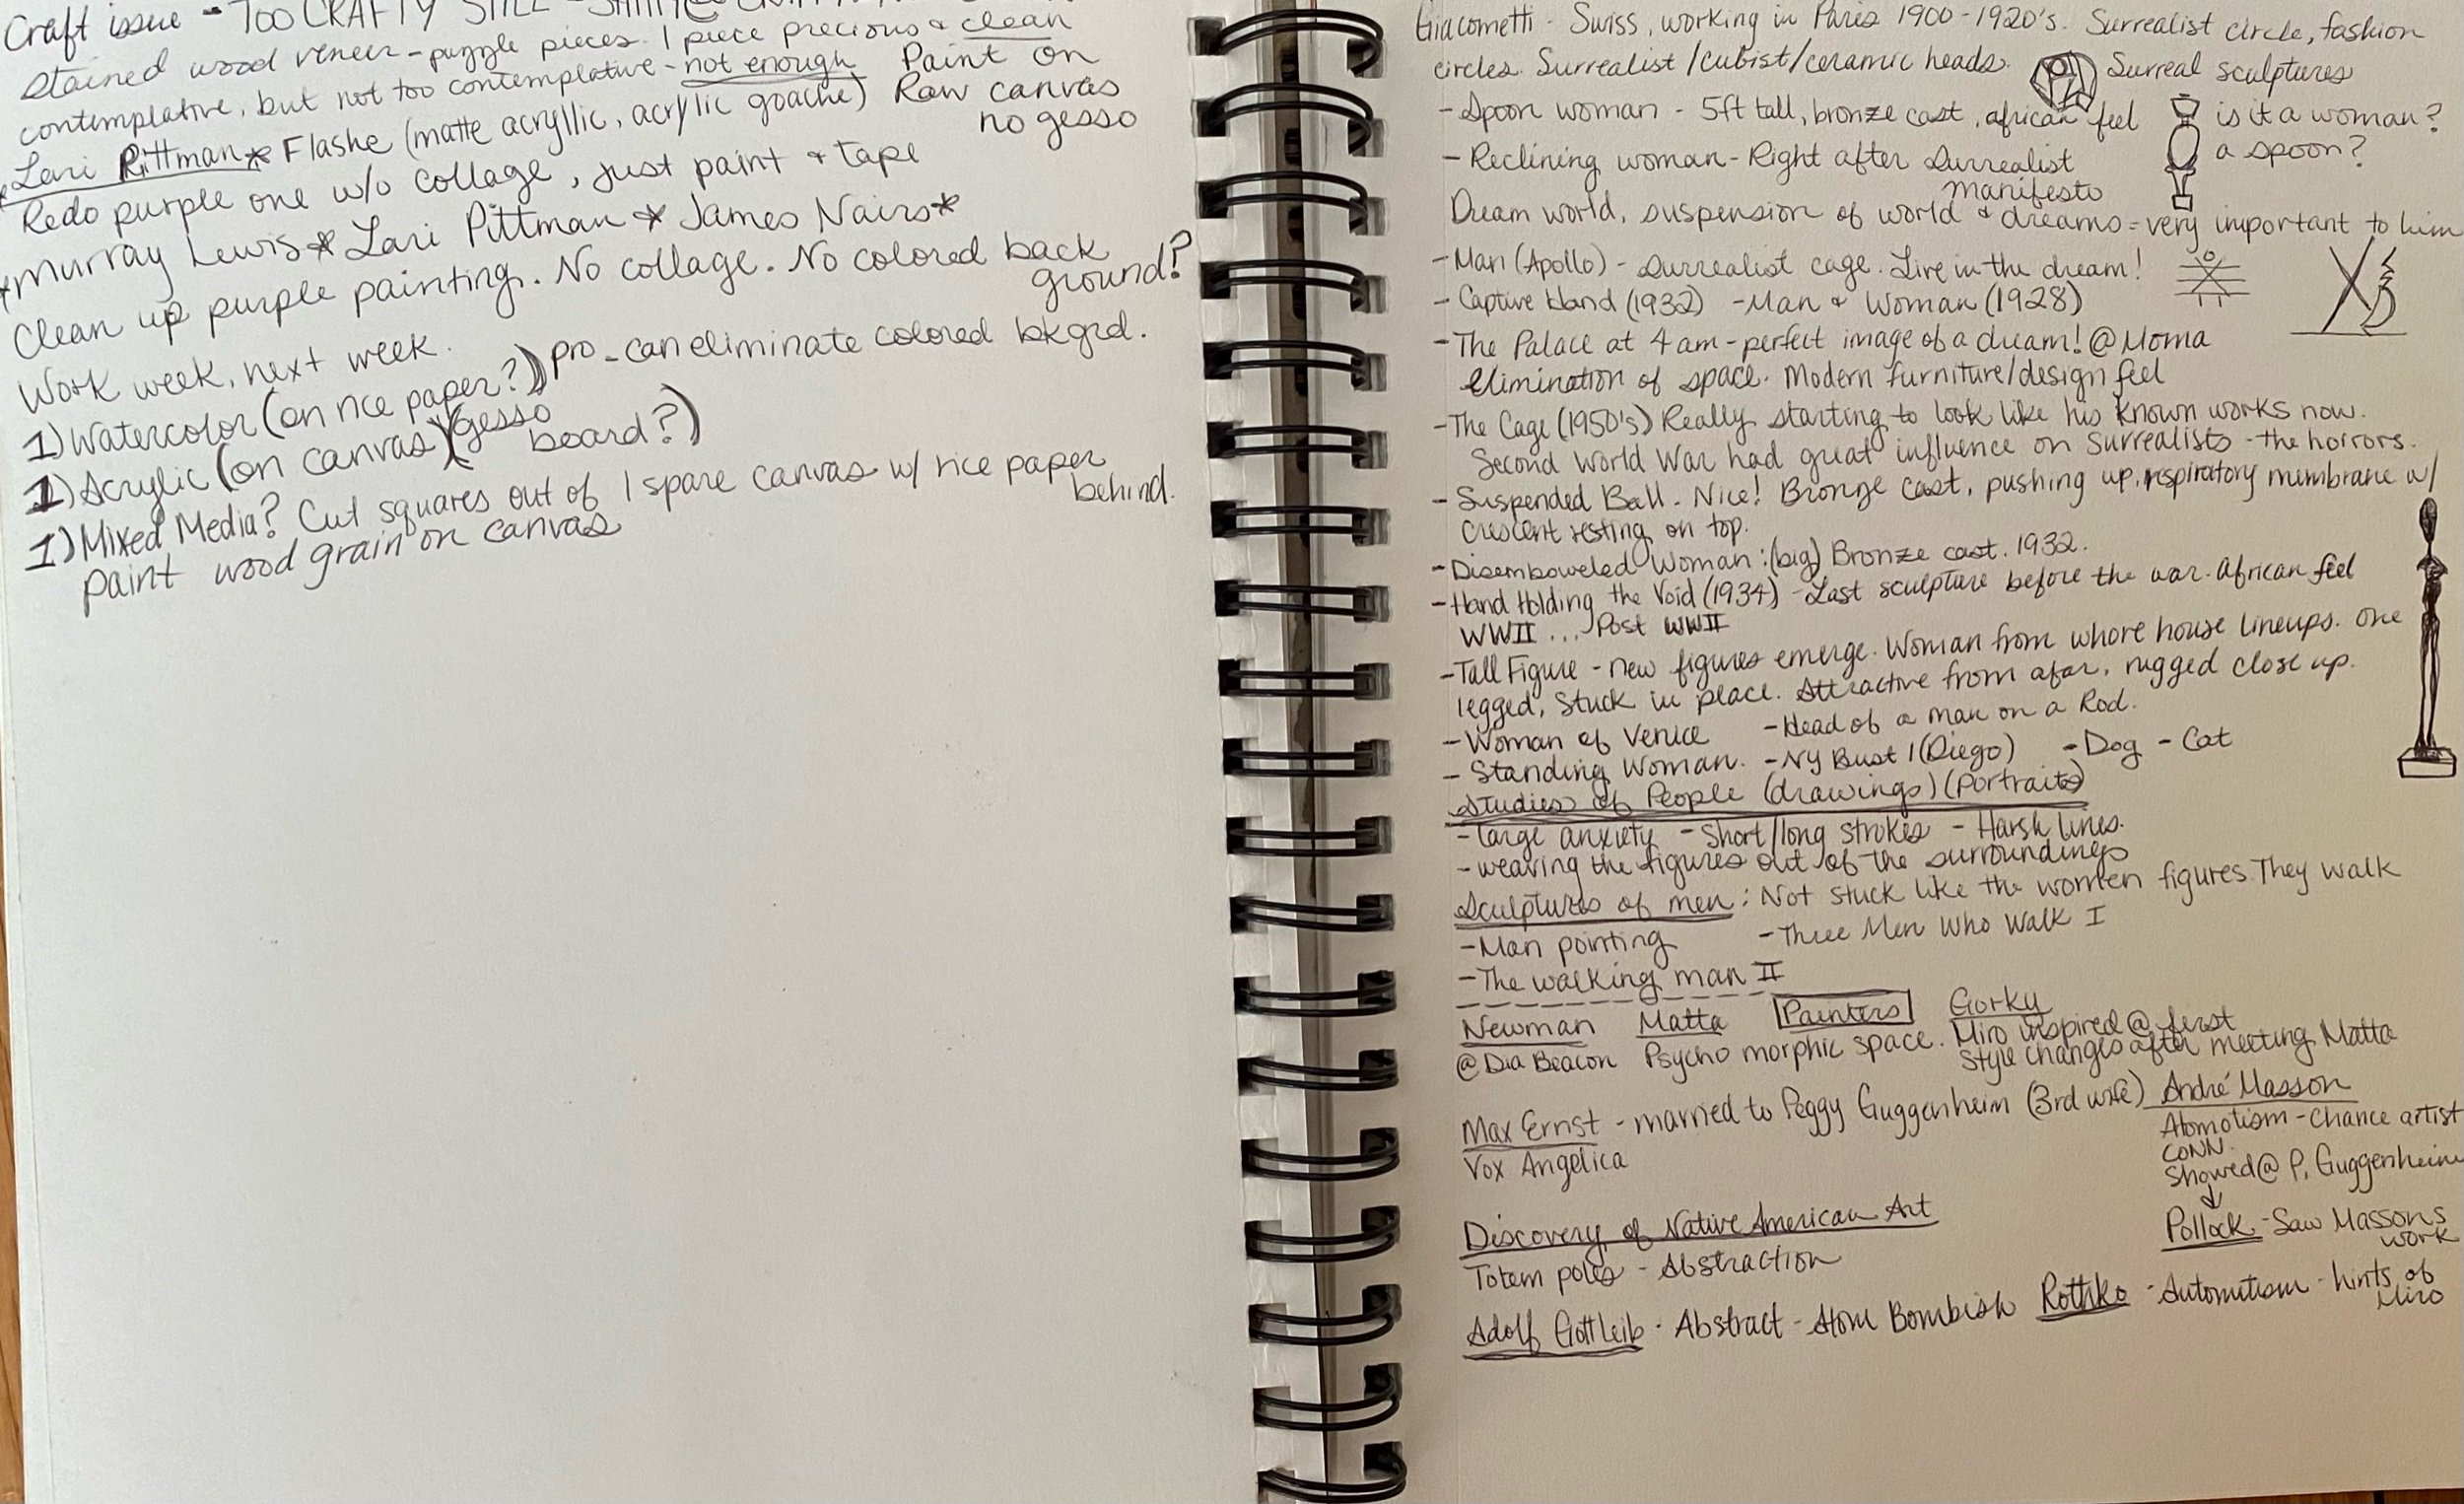 Craft issue - TOO CRAFTY STILL -
Stained wood veneer - puzzle pieces. 1 piece precious & clean
contemplative, but not too contemplative - not enough Paint on
Lari Pittman* Flashe (matte acryllic, acrylic goache) Raw canvas
no gesso
Redo purple one w/o collage, just paint & tape
*Murray Lewis* Lari Pittman * James Nairs*
Clean up purple painting. No collage. No colored back
ground?
Work week, next week.
1) Watercolor (on rice paper?) pro - can eliminate colored bkgrd.
1) Acrylic (on canvas) (gesso
board?)
1) Mixed Media? Cut squares out of 1 spare canvas w/ rice paper
behind.
paint wood grain on canvas
Giacometti - Swiss, working in Paris 1900-1920's. Surrealist circle, fashion
circles. Surrealist/cubist/ceramic heads. Surreal sculptures
- Spoon woman - 5ft tall, bronze cast, african feel is it a woman?
- Reclining woman - Right after Surrealist a spoon?
manifesto
Dream world, suspension of world & dreams = very important to him
- Man (Apollo) - Surrealist cage. Live in the dream!
- Captive Hand (1932) - Man & Woman (1928)
- The Palace at 4am - perfect image of a dream! @ Moma
Elimination of space. Modern furniture/design feel
- The Cage (1950's) Really starting to look like his known works now.
Second World War had great influence on Surrealists - the horrors.
- Suspended Ball - Nice! Bronze cast, pushing up, respiratory membrane w/
crescent resting on top.
- Disemboweled Woman: (big) Bronze cast. 1932.
- Hand Holding the Void (1934) - Last sculpture before the war. African feel
WWII ... Post WWII
- Tall Figure - new figures emerge. Woman from whore house lineups. One
legged, Stuck in place. Attractive from afar, rugged close up.
- Woman of Venice - Head of a man on a Rod.
- Standing Woman. - NY Bust 1 (Diego) - Dog - Cat
Studies of People (drawings) (Portraits)
- Large anxiety - Short/long strokes - Harsh lines.
- weaving the figures out of the surroundings
Sculptures of men: Not stuck like the women figures. They walk
- Man pointing - Three Men Who Walk I
- The walking man II
Newman Matta Painters Gorky
@ Dia Beacon Psycho morphic space. Miro inspired @ first
Style changes after meeting Matta
Max Ernst - married to Peggy Guggenheim (3rd wife) André Masson
Vox Angelica Atomotism - Chance artist
CONN.
Showed @ P. Guggenheim
↓
Discovery of Native American Art Pollock - Saw Massons
work
Totem poles - Abstraction
Adolf Gottleib - Abstract - Atom Bombish Rothko - Automatism - hints of
Miro